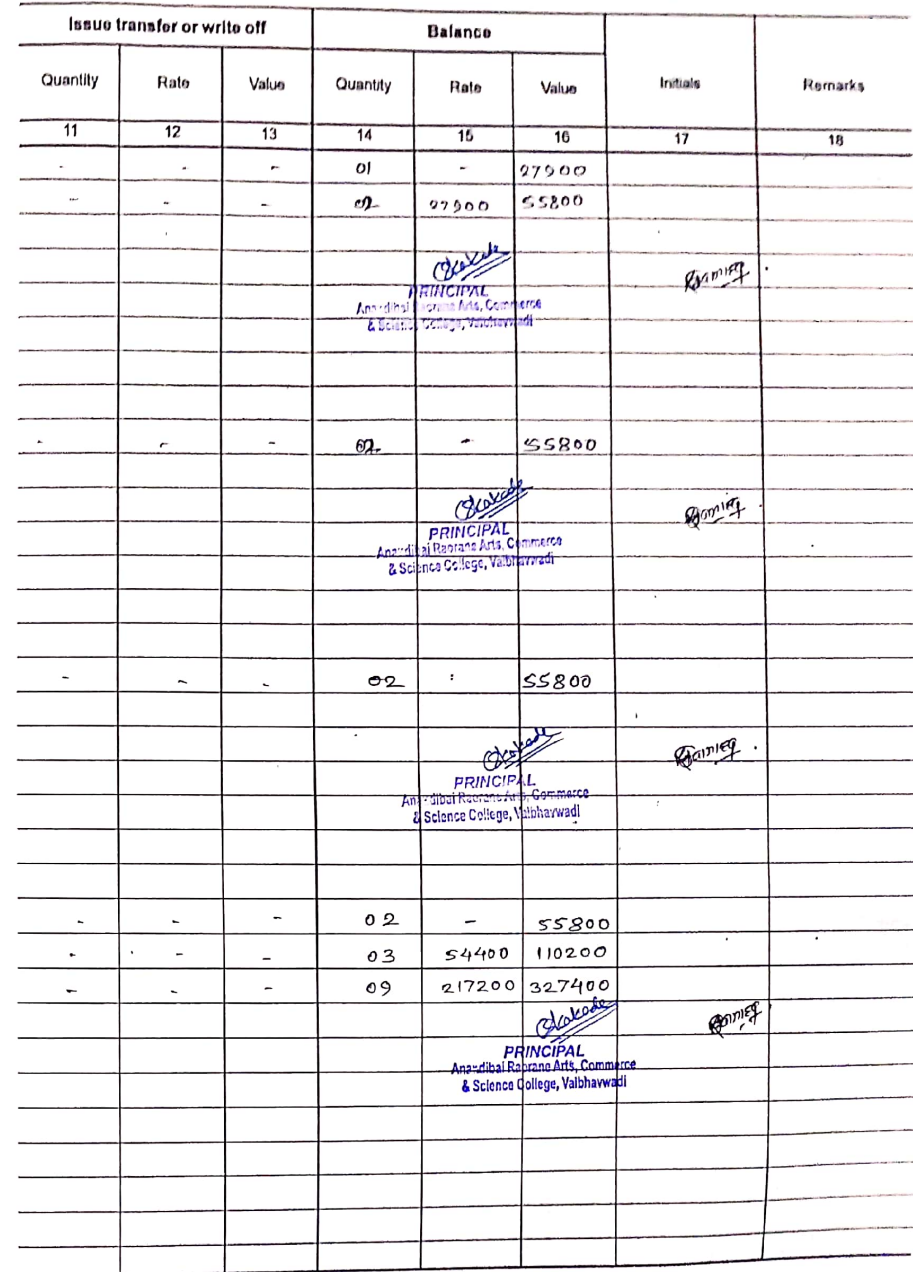 Issue transfer or write off Balance
Quantity Rate Value Quantity Rate Value Initials Remarks
11 12 13 14 15 16 17 18
- - - 01 - 27900
- - - 02 27900 55800
PRINCIPAL
Anandibai Raorane Arts, Commerce
& Science College, Vaibhavwadi
- - - 02 - 55800
PRINCIPAL
Anandibai Raorane Arts, Commerce
& Science College, Vaibhavwadi
- - - 02 : 55800
PRINCIPAL
Anandibai Raorane Arts, Commerce
& Science College, Vaibhavwadi
- - - 02 - 55800
- - - 03 54400 110200
- - - 09 217200 327400
PRINCIPAL
Anandibai Raorane Arts, Commerce
& Science College, Vaibhavwadi